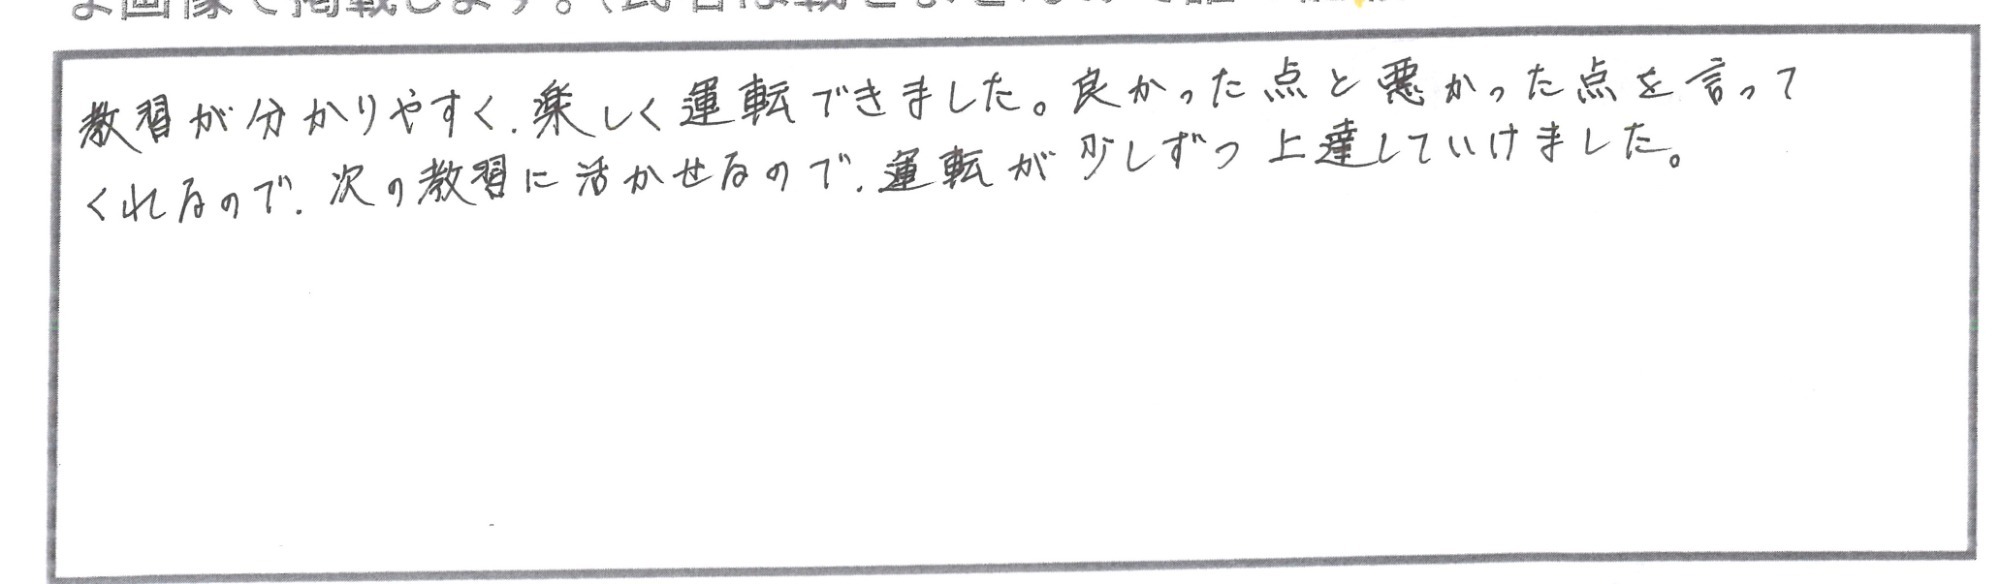 ま画像で掲載します。(氏名は載せませ
教習が分かりやすく、楽しく運転できました。良かった点と悪かった点を言って
くれるので、次の教習に活かせるので、運転が少しずつ上達していけました。